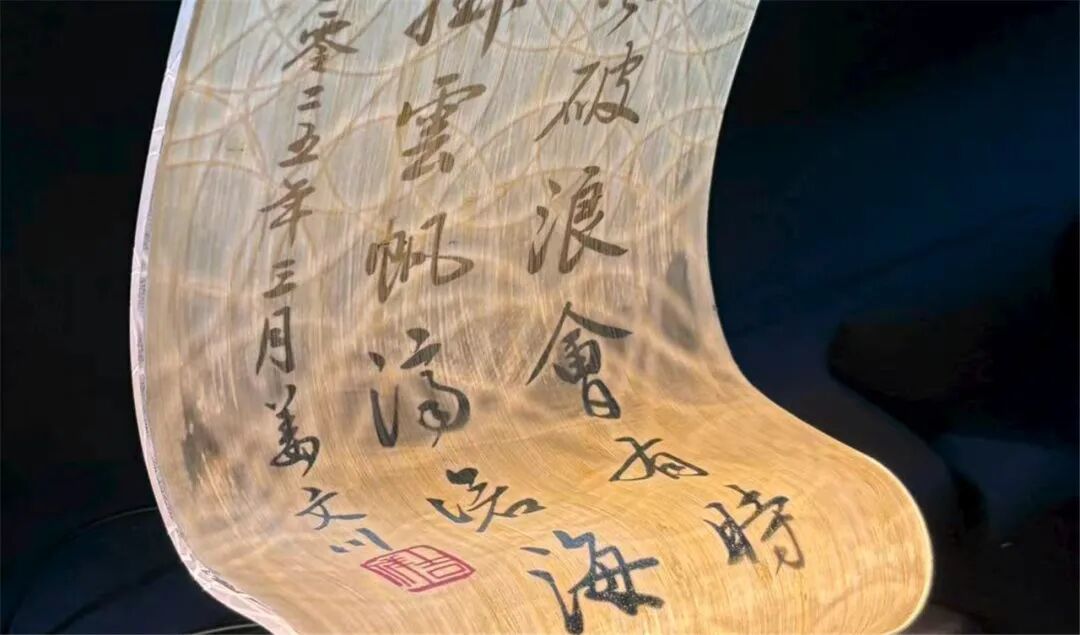 破浪會有時
掛雲帆濟滄海
零二五年三月姜文川